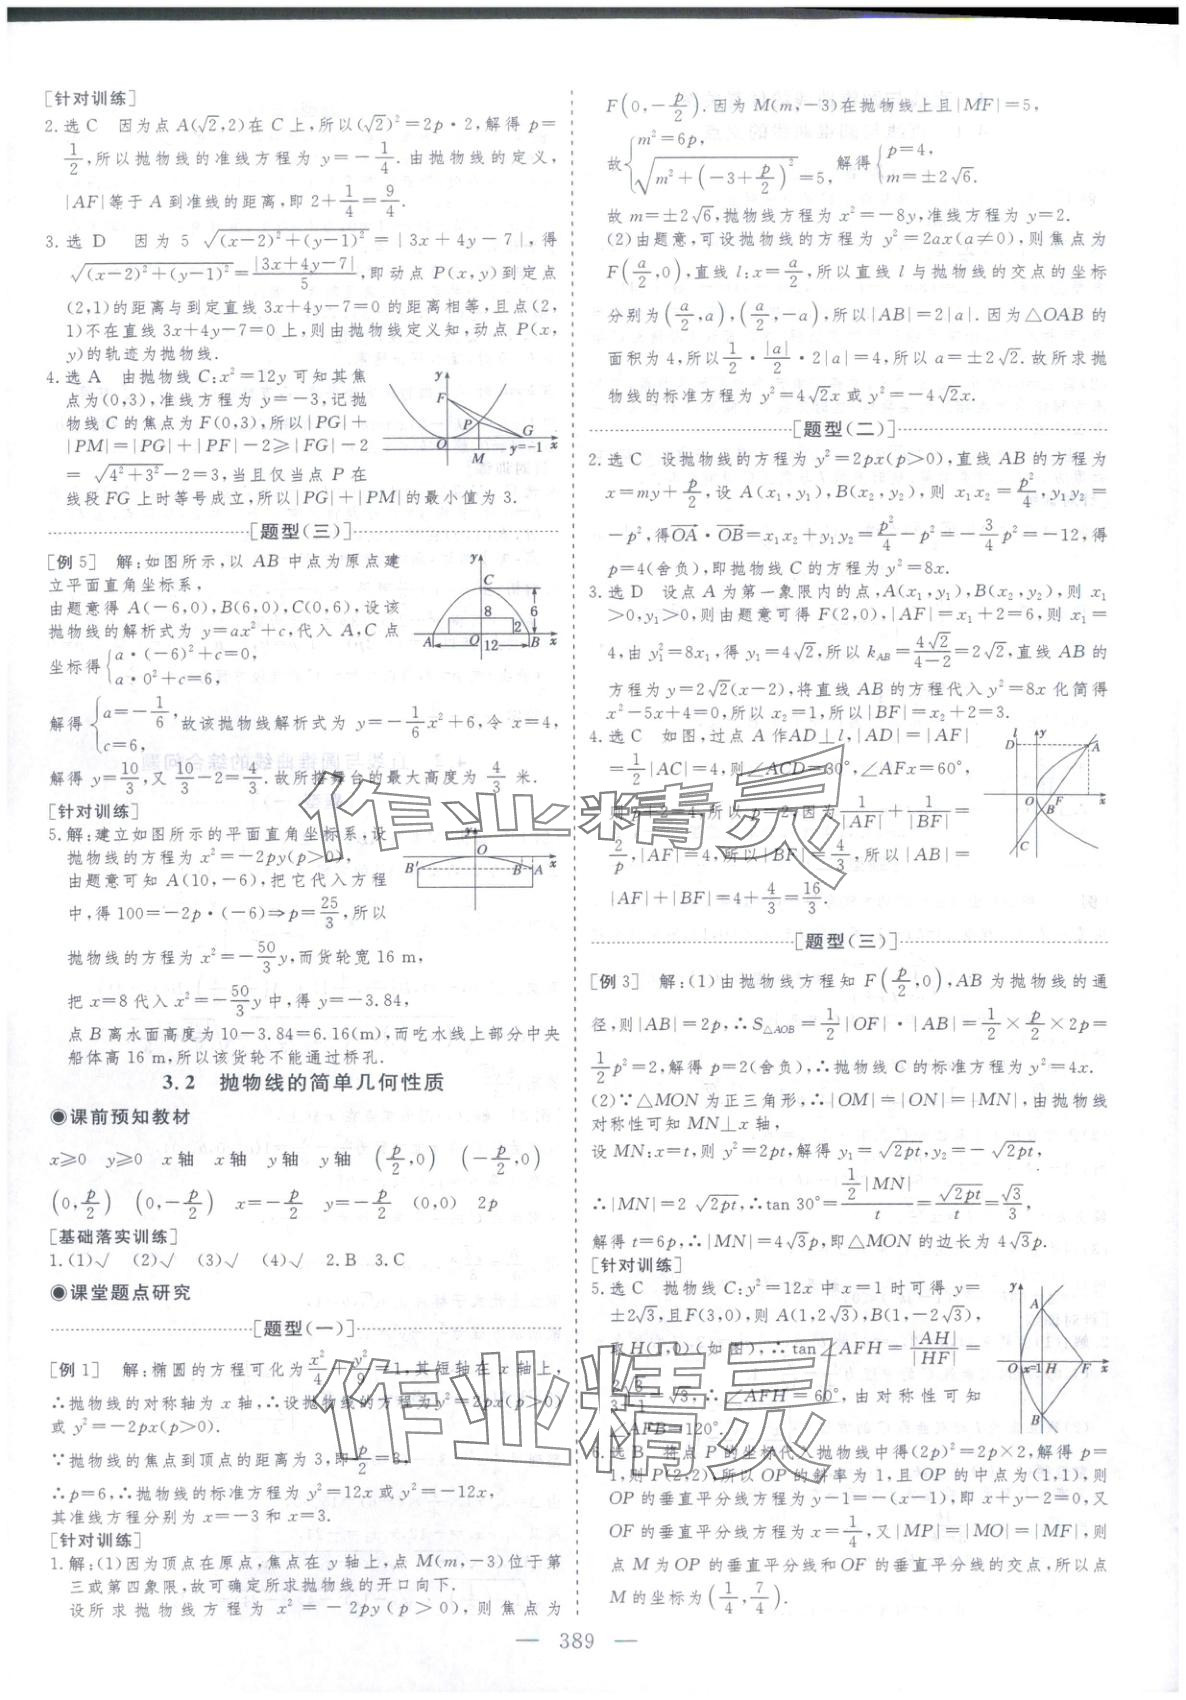 [针对训练]
2.选C 因为点A(√2,2)在C上,所以(√2)²=2p·2,解得p=
1/2,所以抛物线的准线方程为y=-1/4.由抛物线的定义,
|AF|等于A到准线的距离,即2+1/4=9/4.
3.选D 因为5√((x-2)²+(y-1)²)=|3x+4y-7|,得
√((x-2)²+(y-1)²)=|3x+4y-7|/5,即动点P(x,y)到定点
(2,1)的距离与到定直线3x+4y-7=0的距离相等,且点(2,
1)不在直线3x+4y-7=0上,则由抛物线定义知,动点P(x,
y)的轨迹为抛物线.
4.选A 由抛物线C:x²=12y可知其焦
点为(0,3),准线方程为y=-3,记抛
物线C的焦点为F(0,3),所以|PG|+
|PM|=|PG|+|PF|-2≥|FG|-2
=√(4²+3²)-2=3,当且仅当点P在
线段FG上时等号成立,所以|PG|+|PM|的最小值为3.
y F P O G x M y=-1
[题型(三)]
[例5] 解:如图所示,以AB中点为原点建
立平面直角坐标系,
由题意得A(-6,0),B(6,0),C(0,6),设该
抛物线的解析式为y=ax²+c,代入A,C点
坐标得{a·(-6)²+c=0,
a·0²+c=6,
y C 8 6 2 A O 12 B x
解得{a=-1/6,
c=6,
故该抛物线解析式为y=-1/6x²+6,令x=4,
解得y=10/3,又10/3-2=4/3.故所搭舞台的最大高度为4/3米.
[针对训练]
5.解:建立如图所示的平面直角坐标系,设
抛物线的方程为x²=-2py(p>0),
由题意可知A(10,-6),把它代入方程
中,得100=-2p·(-6)⇒p=25/3,所以
y O x B′ B A
抛物线的方程为x²=-50/3y,而货轮宽16 m,
把x=8代入x²=-50/3y中,得y=-3.84,
点B离水面高度为10-3.84=6.16(m),而吃水线上部分中央
船体高16 m,所以该货轮不能通过桥孔.
3.2 抛物线的简单几何性质
◉课前预知教材
x≥0 y≥0 x轴 x轴 y轴 y轴 (p/2,0) (-p/2,0)
(0,p/2) (0,-p/2) x=-p/2 y=-p/2 (0,0) 2p
[基础落实训练]
1.(1)√ (2)√ (3)√ (4)√ 2.B 3.C
◉课堂题点研究
[题型(一)]
[例1] 解:椭圆的方程可化为x²/4+y²/9=1,其短轴在x轴上,
∴抛物线的对称轴为x轴,∴设抛物线的方程为y²=2px(p>0)
或y²=-2px(p>0).
∵抛物线的焦点到顶点的距离为3,即p/2=3,
∴p=6,∴抛物线的标准方程为y²=12x或y²=-12x,
其准线方程分别为x=-3和x=3.
[针对训练]
1.解:(1)因为顶点在原点,焦点在y轴上,点M(m,-3)位于第
三或第四象限,故可确定所求抛物线的开口向下.
设所求抛物线方程为x²=-2py(p>0),则焦点为
F(0,-p/2).因为M(m,-3)在抛物线上且|MF|=5,
故{m²=6p,
√(m²+(-3+p/2)²)=5,
解得{p=4,
m=±2√6.
故m=±2√6,抛物线方程为x²=-8y,准线方程为y=2.
(2)由题意,可设抛物线的方程为y²=2ax(a≠0),则焦点为
F(a/2,0),直线l:x=a/2,所以直线l与抛物线的交点的坐标
分别为(a/2,a),(a/2,-a),所以|AB|=2|a|.因为△OAB的
面积为4,所以1/2·|a|/2·2|a|=4,所以a=±2√2.故所求抛
物线的标准方程为y²=4√2x或y²=-4√2x.
[题型(二)]
2.选C 设抛物线的方程为y²=2px(p>0),直线AB的方程为
x=my+p/2,设A(x₁,y₁),B(x₂,y₂),则x₁x₂=p²/4,y₁y₂=
-p²,得OA·OB=x₁x₂+y₁y₂=p²/4-p²=-3/4p²=-12,得
p=4(舍负),即抛物线C的方程为y²=8x.
3.选D 设点A为第一象限内的点,A(x₁,y₁),B(x₂,y₂),则x₁
>0,y₁>0,则由题意可得F(2,0),|AF|=x₁+2=6,则x₁=
4,由y₁²=8x₁,得y₁=4√2,所以k_AB=4√2/(4-2)=2√2,直线AB的
方程为y=2√2(x-2),将直线AB的方程代入y²=8x化简得
x²-5x+4=0,所以x₂=1,所以|BF|=x₂+2=3.
4.选C 如图,过点A作AD⊥l,|AD|=|AF|
=1/2|AC|=4,则∠ACD=30°,∠AFx=60°,
则p+2=4,所以p=2,因为1/|AF|+1/|BF|=
2/p,|AF|=4,所以|BF|=4/3,所以|AB|=
|AF|+|BF|=4+4/3=16/3.
l y D A O B F x C
[题型(三)]
[例3] 解:(1)由抛物线方程知F(p/2,0),AB为抛物线的通
径,则|AB|=2p,∴S△AOB=1/2|OF|·|AB|=1/2×p/2×2p=
1/2p²=2,解得p=2(舍负),∴抛物线C的标准方程为y²=4x.
(2)∵△MON为正三角形,∴|OM|=|ON|=|MN|,由抛物线
对称性可知MN⊥x轴,
设MN:x=t,则y²=2pt,解得y₁=√(2pt),y₂=-√(2pt),
∴|MN|=2√(2pt),∴tan 30°=(1/2|MN|)/t=√(2pt)/t=√3/3,
解得t=6p,∴|MN|=4√3p,即△MON的边长为4√3p.
[针对训练]
5.选C 抛物线C:y²=12x中x=1时可得y=
±2√3,且F(3,0),则A(1,2√3),B(1,-2√3),
取H(1,0)(如图),∴tan∠AFH=|AH|/|HF|=
2√3/(3-1)=√3,∴∠AFH=60°,由对称性可知
∠AFB=120°.
y A O x=1 H F x B
6.选B 将点P的坐标代入抛物线中得(2p)²=2p×2,解得p=
1,则P(2,2),所以OP的斜率为1,且OP的中点为(1,1),则
OP的垂直平分线方程为y-1=-(x-1),即x+y-2=0,又
OF的垂直平分线方程为x=1/4,又|MP|=|MO|=|MF|,则
点M为OP的垂直平分线和OF的垂直平分线的交点,所以点
M的坐标为(1/4,7/4).
作业精灵
作业精灵
— 389 —